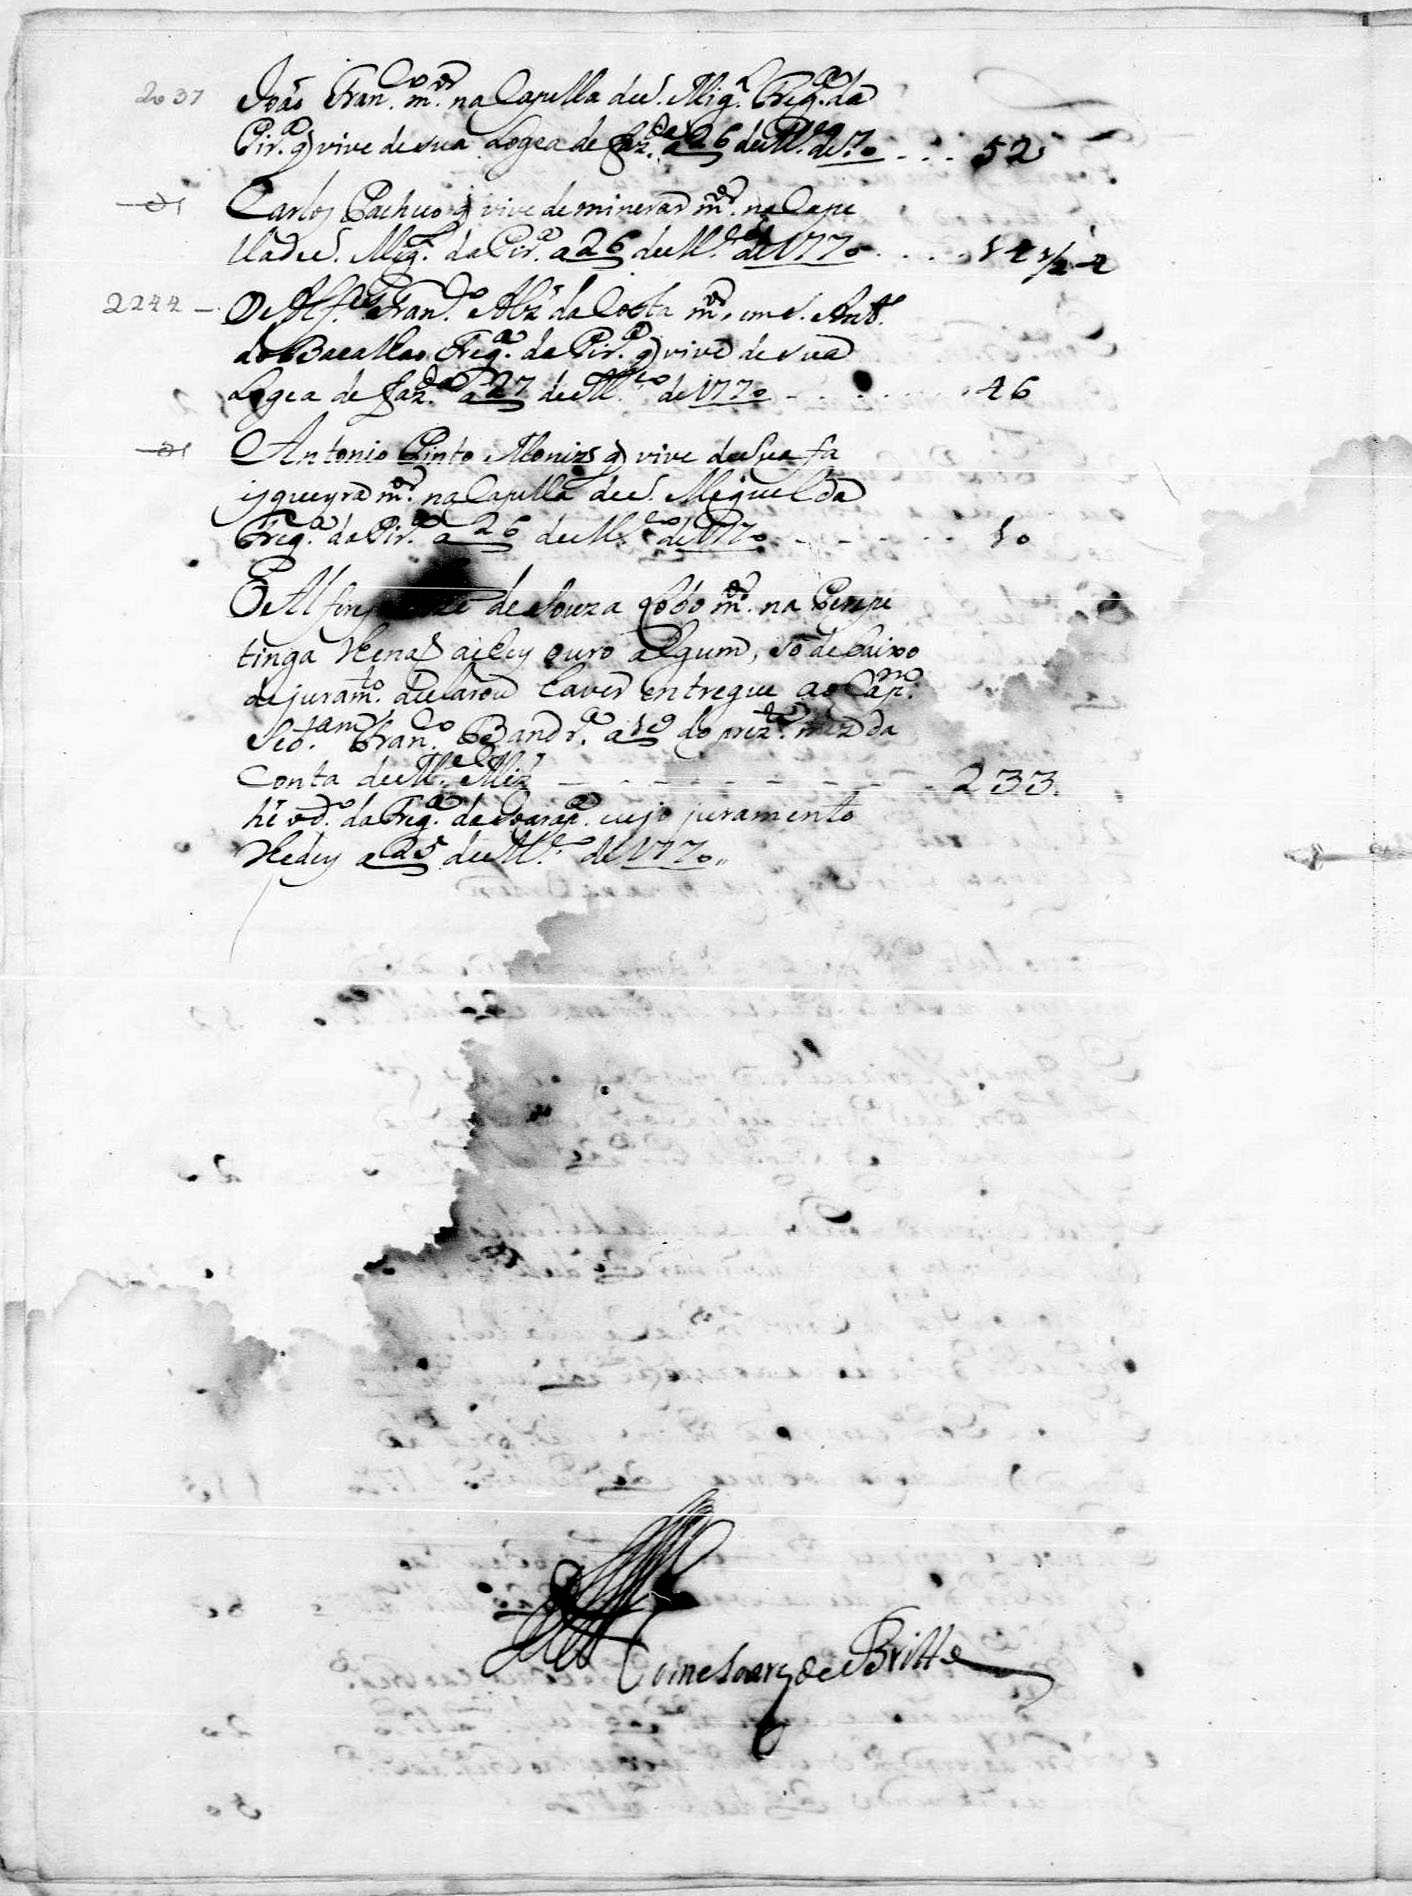 2037 João Fran.co m.or na Capella de S. Mig.l Freg.a da
Pir.a q vive de sua Logea de faz.da a 26 de M.ço de 70 - . . . 52
Carlos Pacheco q vive de minerar m.or na Cape
lla de S. Mig.l da Pir.a a 26 de M.ço de 1770 . . . . 14 1/2 4
2244 - O Alf.es Fran.co Alz' da Costa m.or, em S. Ant.o
do Bacalhao Freg.a da Pir.a q vive de sua
Logea de faz.da a 27 de M.ço de 1770 - . . . . . . 46
Antonio Pinto Moniz q vive de sua fa
isqueyra m.or na Capella de S. Miguel da
Freg.a da Pir.a a 26 de M.ço de 1770 - - - - - . . 10
O Alferes de Souza Lobo m.or na Perepe
tinga lhe nao achey ouro algum, só debaixo
de juram.to declarou haver entregue ao Cap.m
Seb.am Fran.co Bandr.a a 19 do prez.te mez da
Conta de M.el Miz' - - - - - - - - - 233.
hé da Freg.a de Guarap.a cujo juramento
lhe dey a 25 de M.ço de 1770,,
Come Soares de Britto